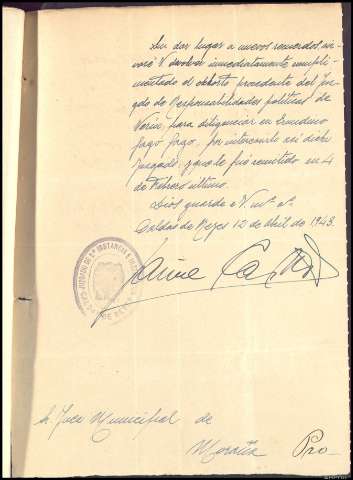 Sin dar lugar a nuevos recuerdos, sir-
vase V devolver inmediatamente cumpli-
mentado el exhorto procedente del Juz-
gado de Responsabilidades políticas de
Verin, para diligenciar en
Gago Gago, por interesarlo así dicho
Juzgado, que le fué remitido en 4
de Febrero último.
Dios guarde a V. ms. as.
Caldas de Reyes 12 de Abril de 1943.
Jaime
JUZGADO DE 1ª INSTANCIA E
DE REYES
Sr Juez Municipal de
Moraña Pro-